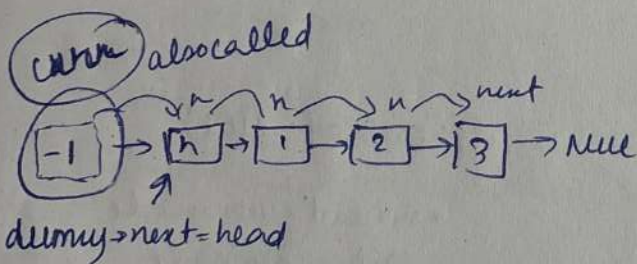 curr also called
n n n next
-1 → h → 1 → 2 → 3 → NULL
dummy→next=head